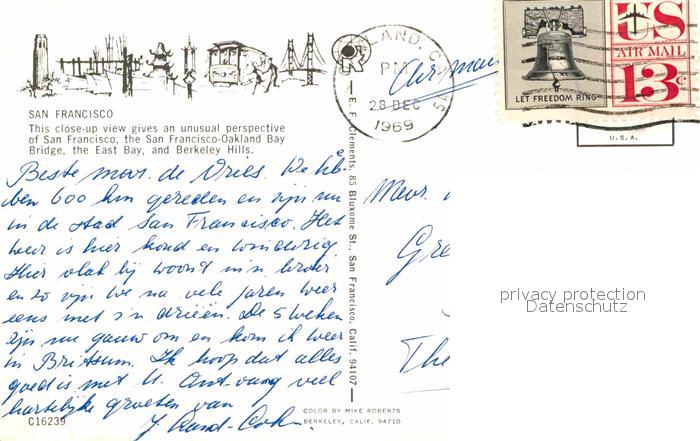 LAND, C
PM
28 DEC
1969
Air mail
US
AIR MAIL
13c
LET FREEDOM RING
U.S.A.
SAN FRANCISCO
This close-up view gives an unusual perspective
of San Francisco, the San Francisco-Oakland Bay
Bridge, the East Bay, and Berkeley Hills.
E. F. Clements, 85 Bluxome St., San Francisco, Calif. 94107
Beste mevr. de Vries. We heb
ben 600 km gereden en zijn nu
in de stad San Francisco. Het
weer is hier koud en winderig.
Hier vlak bij woont m'n broer
en zo zijn we na vele jaren weer
eens met z'n drieën. De 5 weken
zijn nu gauw om en kom ik weer
in Britsum. Ik hoop dat alles
goed is met U. Ontvang veel
hartelijke groeten van
J.
C16239
Mevr.
Gre
The
COLOR BY MIKE ROBERTS
BERKELEY, CALIF. 94710
privacy protection
Datenschutz